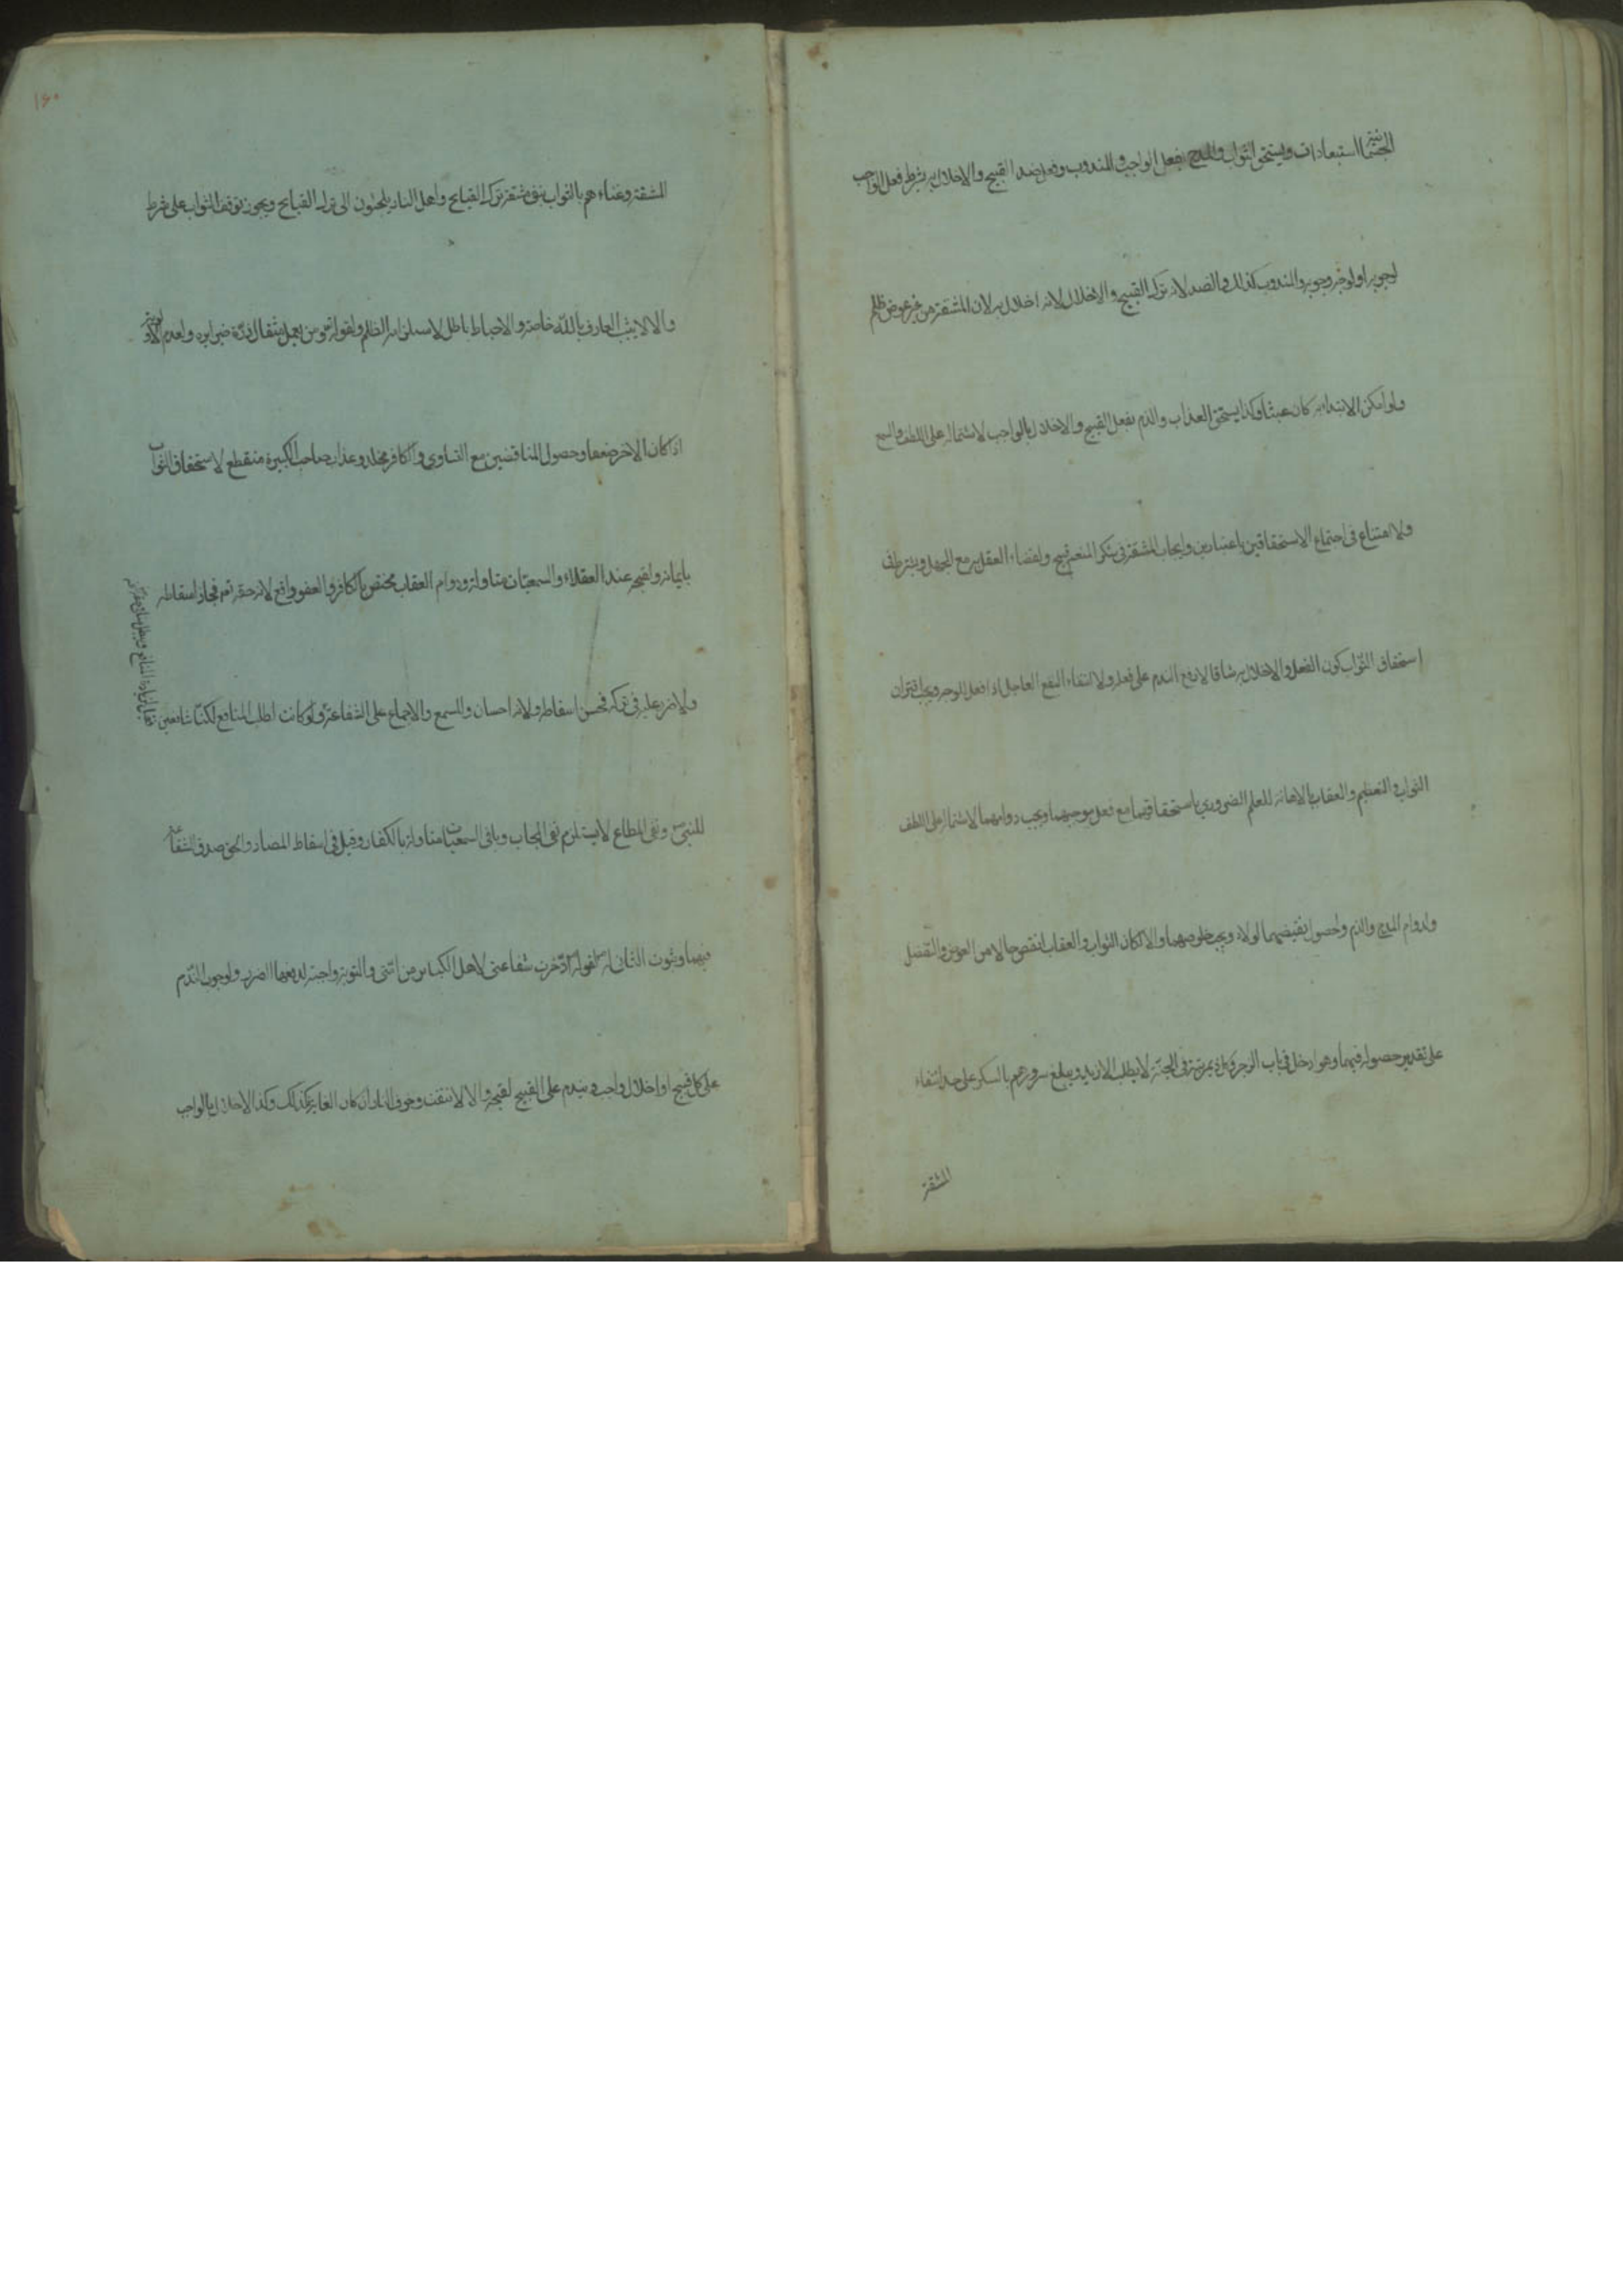 الجسمانية استبعادات ويستحق الثواب والمدح بفعل الواجب والمندوب وفعل ضد القبيح والاخلال به بشرط فعل الواجب
لوجوبه او لوجه وجوبه والمندوب كذلك والضد لانه ترك القبيح والاخلال لانه اخلال به لان المشقة من غير عوض ظلم
ولو امكن الابتداء به كان عبثا وكذا يستحق العذاب والذم بفعل القبيح والاخلال بالواجب لاشتماله على اللطف والسمع
ولا امتناع فى اجتماع الاستحقاقين باعتبارين وايجاب المشقة فى شكر المنعم قبيح ولقضاء العقل به مع الجهل ويشترط فى
استحقاق الثواب كون الفعل والاخلال به شاقا لا رفع الندم على فعله ولا انتفاء النفع العاجل اذا فعل للوجه ويجب اقتران
الثواب والتعظيم والعقاب بالاهانة للعلم الضرورى باستحقاقهما مع فعل موجبهما ويجب دوامهما لاشتماله على اللطف
ولدوام المدح والذم ولحصول نقيضيهما لولاه ويجب خلوصهما والا لكان الثواب والعقاب انقص حالا من العوض والتفضل
على تقدير حصوله فيهما وهو ادخل فى باب الزجر وكل ذى مرتبة فى الجنة لا يطلب الازيد ويبلغ سرورهم بالشكر على حد انتفاء
المشقة
١٦٠
المشقة وغناءهم بالثواب ينفى مشقة ترك القبايح واهل النار يلجئون الى ترك القبايح ويجوز توقف الثواب على شرط
والا لاثيب العارف بالله خاصة والاحباط باطل لاستلزامه الظلم ولقوله تع ومن يعمل مثقال ذرة خيرا يره ولعدم الاولوية
اذا كان الاخر ضعفا وحصول المتناقضين مع التساوى والكافر مخلد وعذاب صاحب الكبيرة منقطع لاستحقاق الثواب
بايمانه ولقبحه عند العقلاء والسمعيات متاولة ودوام العقاب مختص بالكافر والعفو واقع لانه حقه تع فجاز اسقاطه
ولا ضرر عليه فى تركه فحسن اسقاطه ولانه احسان وللسمع والاجماع على الشفاعة ولو كانت لطلب المنافع لكنا شافعين
للنبى ص ونفى المطاع لا يستلزم نفى المجاب وباقى السمعيات متاولة بالكفار وقيل فى اسقاط المضار والحق صدق الشفاعة
فيهما وثبوت الثانى له لقوله ادخرت شفاعتى لاهل الكبائر من امتى والتوبة واجبة لدفعها الضرر ولوجوب الندم
على كل قبيح او اخلال واجب ويندم على القبيح لقبحه والا لانتفت وخوف النار ان كان الغاية فكذلك وكذا الاخلال بالواجب